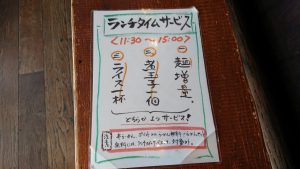 ランチタイムサービス
<11:30~15:00>
一 麺増量
二 煮玉子一個
三 ライス一杯
どちらか1つサービス!